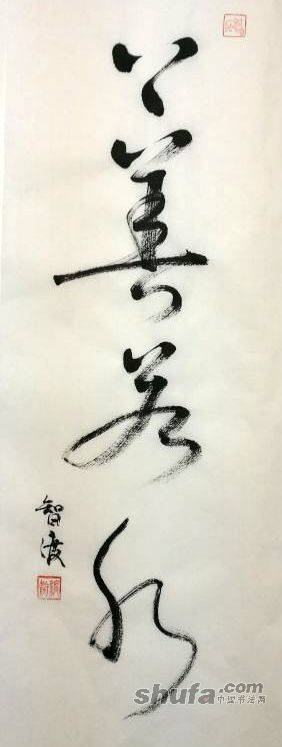 上善若水
智渡
shufa.com
中国书法网